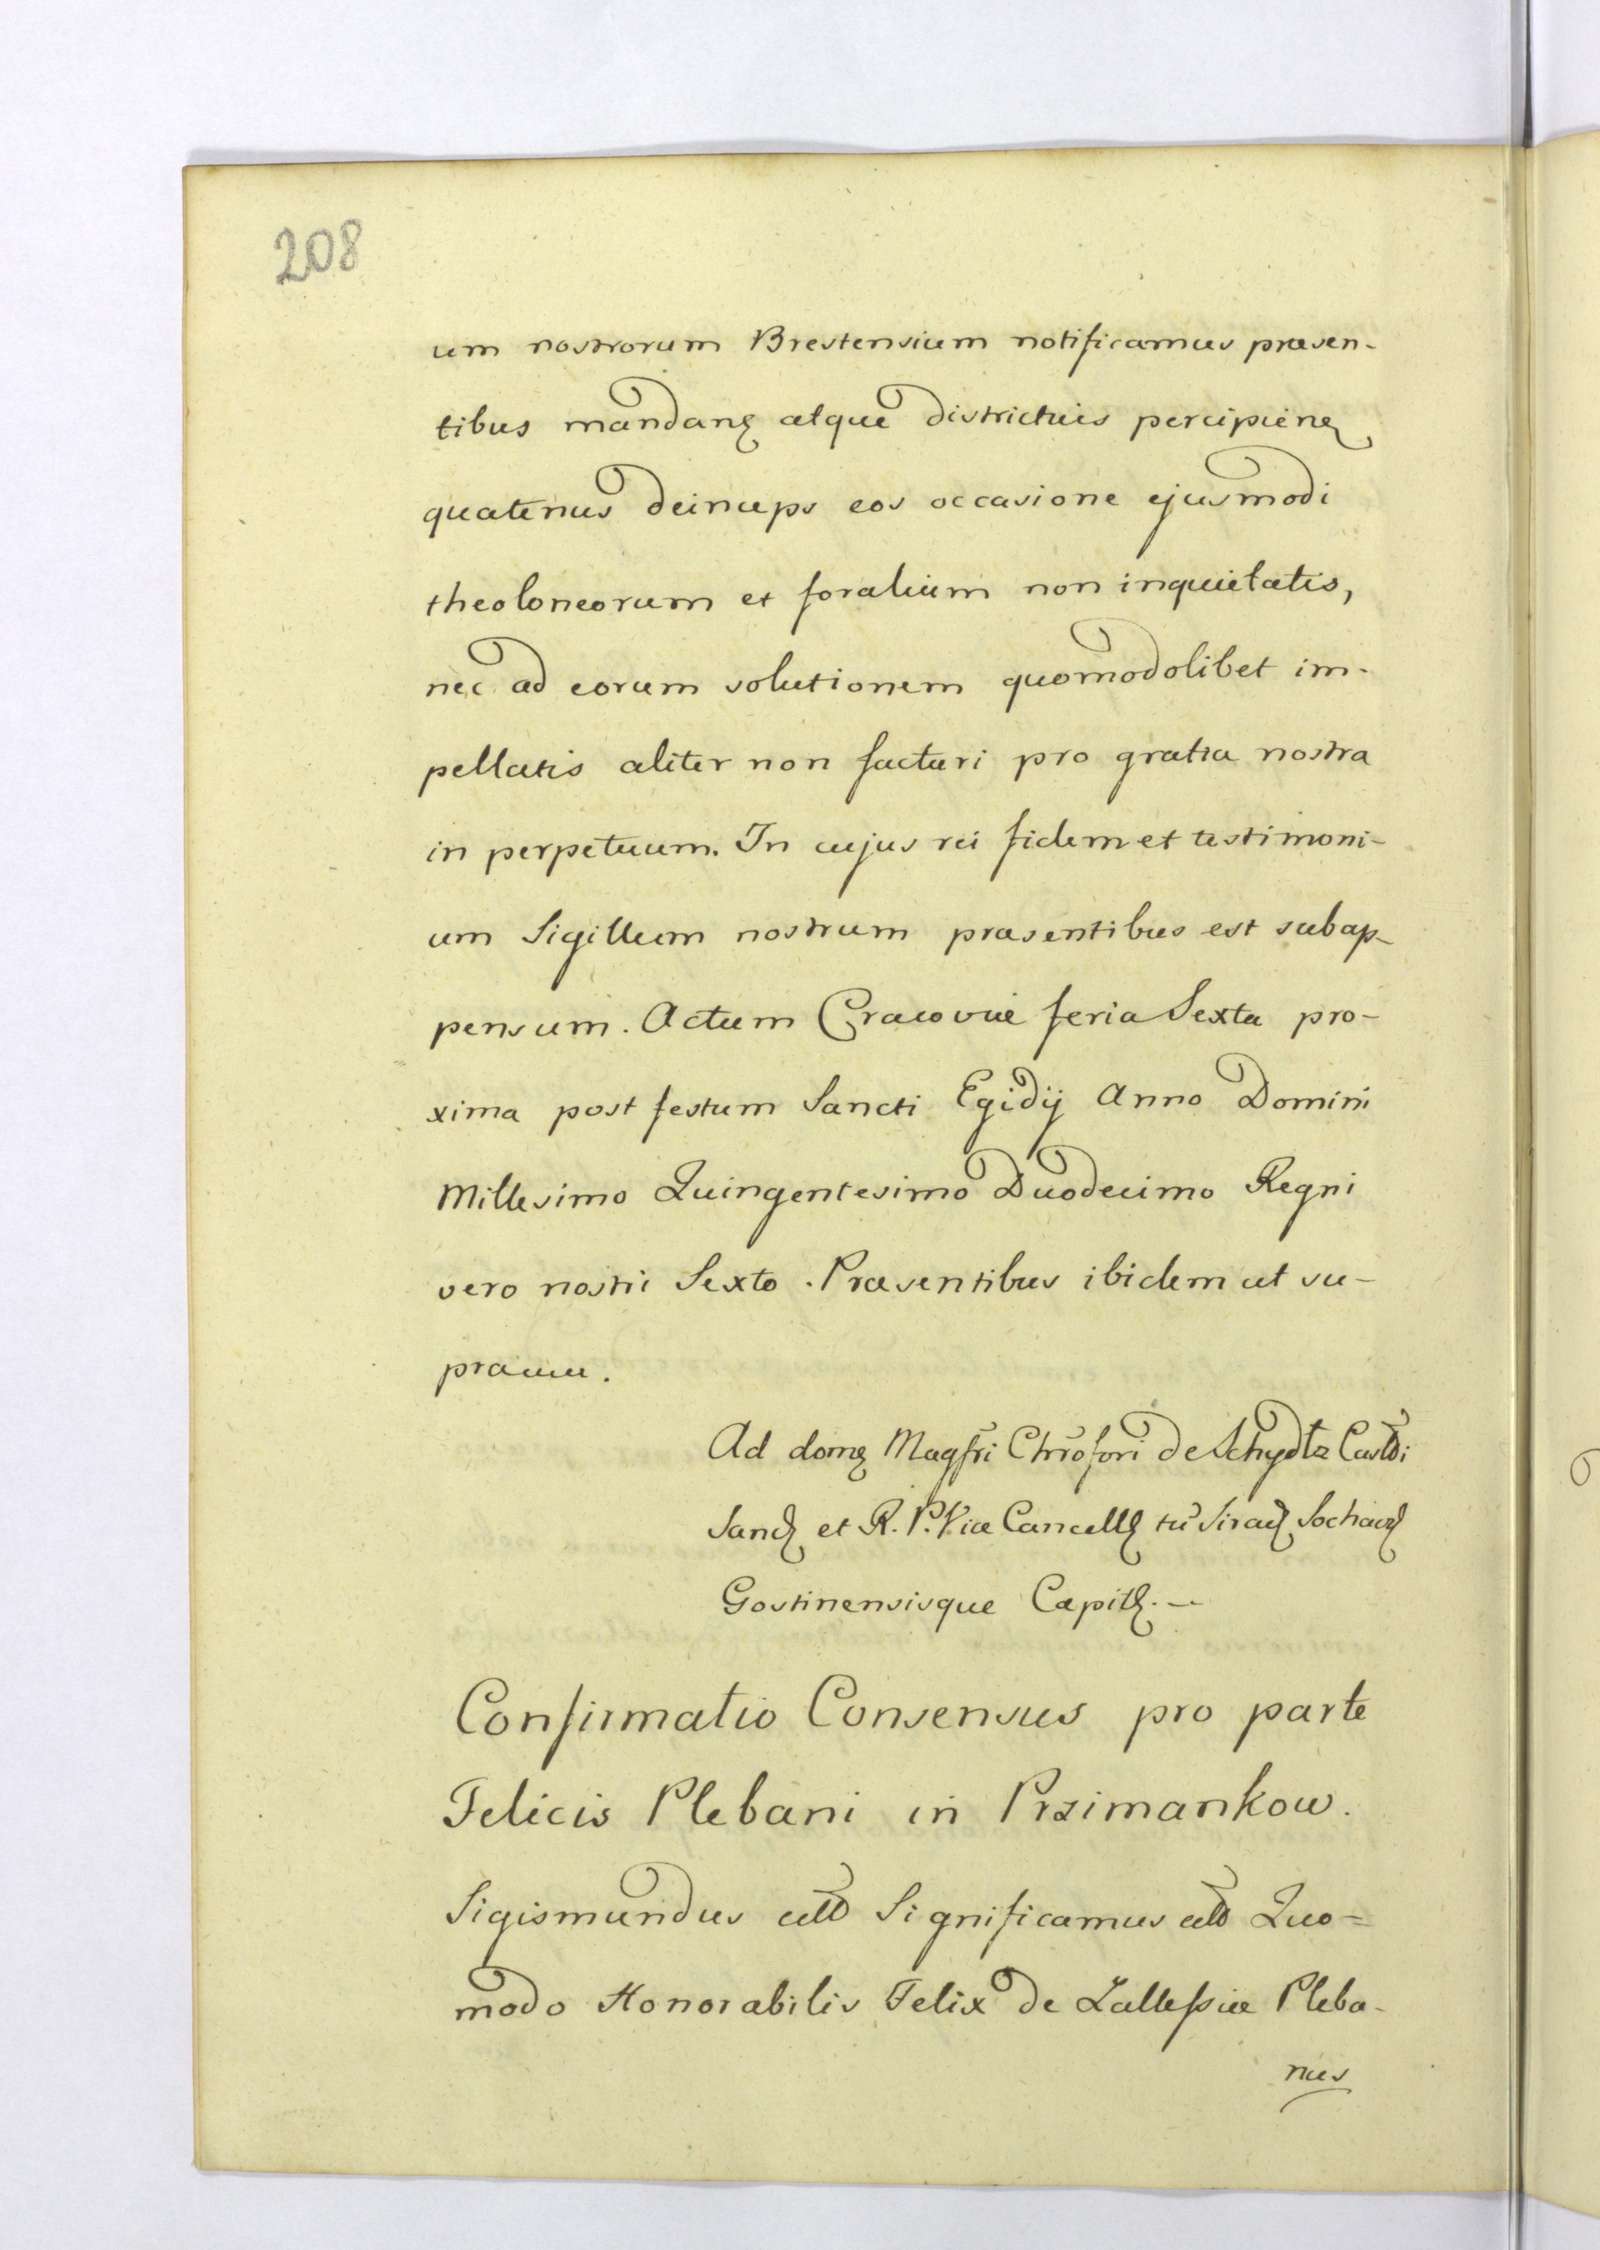 208
um nostrorum Brestensium notificamus præsen-
tibus mandanꝫ atque districtius percipienꝫ
quatenus deinceps eos occasione ejusmodi
theoloneorum et foralium non inquietatis,
nec ad eorum solutionem quomodolibet im-
pellatis aliter non facturi pro gratia nostra
in perpetuum. In cujus rei fidem et testimoni-
um Sigillum nostrum præsentibus est subap-
pensum. Actum Cracoviæ feria Sexta pro-
xima post festum Sancti Egidij Anno Domini
Millesimo Quingentesimo Duodecimo Regni
vero nostri Sexto. Præsentibus ibidem ut su-
Ad domꝫ Magfri Chrofori de Schydlz Castdi
Sandꝫ et R. P. Vice Cancellꝫ tu Siradꝫ Sochacꝫ
Gostinensisque Capitꝫ. —
Confirmatio Consensus pro parte
Felicis Plebani in Przimankow.
Sigismundus Significamus Quo=
modo Honorabilis Felix de Zallessie Pleba-
nus